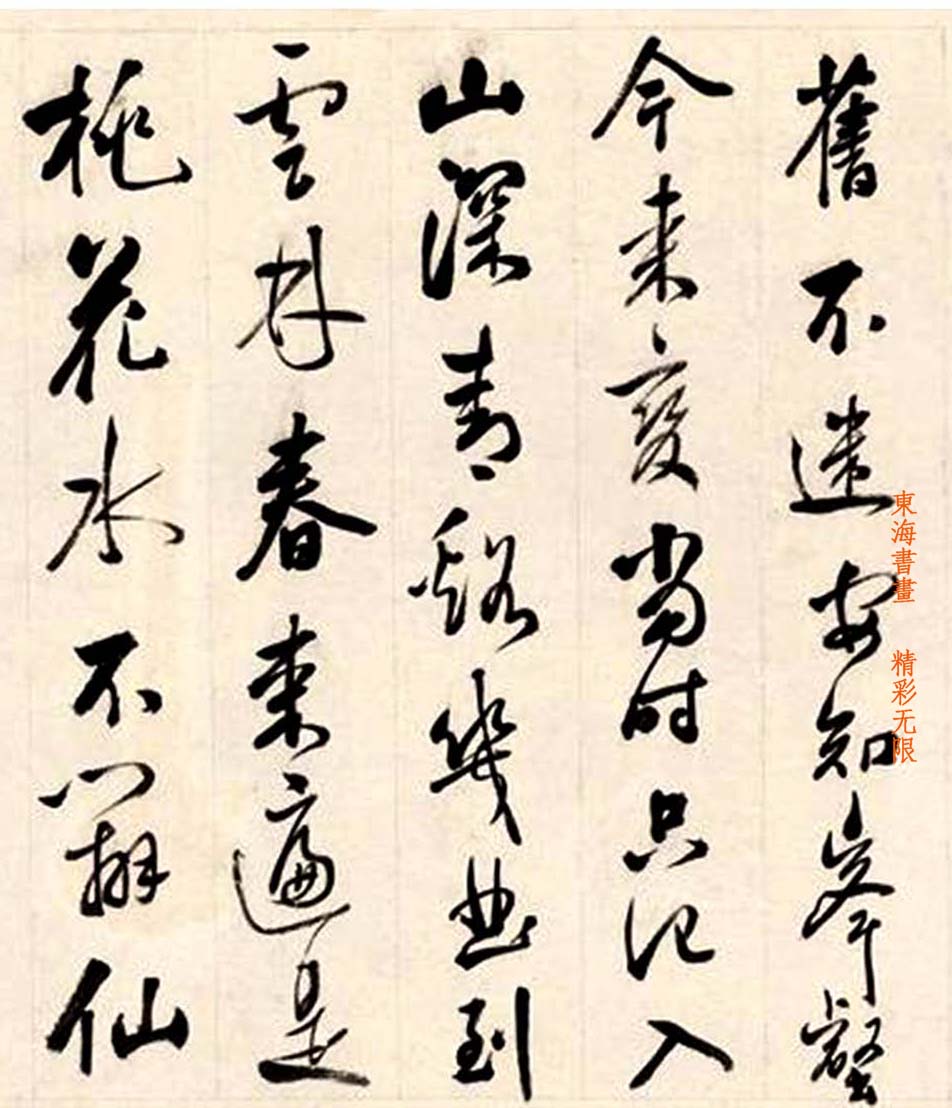 舊不迷安知峯壑
今来變當時只記入
山深青谿幾曲到
雲林春来遍是
桃花水不辨仙
東海書畫 精彩无限